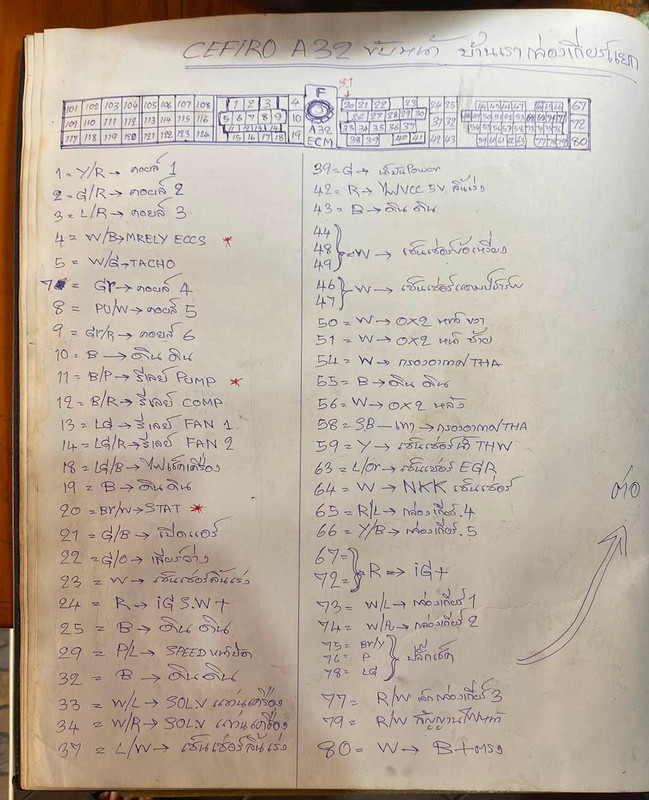 CEFIRO A32 ขับหน้า บ้านเรา กล่องเกียร์แยก
81
F
A32
ECM
101 102 103 104 105 106 107 108
109 110 111 112 113 114 115 116
117 118 119 120 121 122 123 124
1 2 3 4
5 6 7 8 9 10
11 12 13 14
15 16 17 18 19
20 21 22 23 24 25
26 27 28 29 30 31 32
33 34 35 36 37
38 39 40 41 42 43
67
72
80
1 = Y/R → คอยล์ 1
2 = G/R → คอยล์ 2
3 = L/R → คอยล์ 3
4 = W/B → MRELY ECCS *
5 = W/G → TACHO
7 = Gr → คอยล์ 4
8 = PU/W → คอยล์ 5
9 = Gr/R → คอยล์ 6
10 = B → ดิน ดิน
11 = B/P → รีเลย์ PUMP *
12 = B/R → รีเลย์ COMP
13 = LG → รีเลย์ FAN 1
14 = LG/R → รีเลย์ FAN 2
18 = LG/B → ไฟเช็คเครื่อง
19 = B → ดิน ดิน
20 = Br/W → STAT *
21 = G/B → เปิดแอร์
22 = G/O → เลียร์ว่าง
23 = W → เซ็นเซอร์ลิ้นเร่ง
24 = R → iG S.W +
25 = B → ดิน ดิน
29 = P/L → SPEED หน้าปัด
32 = B → ดิน ดิน
33 = W/L → SOLV แท่นเครื่อง
34 = W/R → SOLV แท่นเครื่อง
37 = L/W → เซ็นเซอร์ลิ้นเร่ง
39 = G → Power
42 = R → ไฟ VCC 5V ลิ้นเร่ง
43 = B → ดิน ดิน
44
48
49 } = W → เซ็นเซอร์ข้อเหวี่ยง
46
47 } = W → เซ็นเซอร์แคมป์ชาร์ฟ
50 = W → OX2 หน้า ขวา
51 = W → OX2 หน้า ซ้าย
54 = W → กรองอากาศ THA
55 = B → ดิน ดิน
56 = W → OX2 หลัง
58 = SB — เทา → กรองอากาศ/THA
59 = Y → เซ็นเซอร์น้ำ THW
63 = L/Or → เซ็นเซอร์ EGR
64 = W → NKK เซ็นเซอร์
65 = R/L → กล่องเกียร์.4
66 = Y/B → กล่องเกียร์.5
67 =
72 = } R ⇒ iG+
73 = W/L → กล่องเกียร์ 1
74 = W/PU → กล่องเกียร์ 2
75 = Br/Y
76 = P
78 = LG } → ปลั๊กเช็ค
77 = R/W เข้ากล่องเกียร์ 3
79 = R/W สัญญาณไฟหน้า
80 = W → B+ตรง
ต่อ